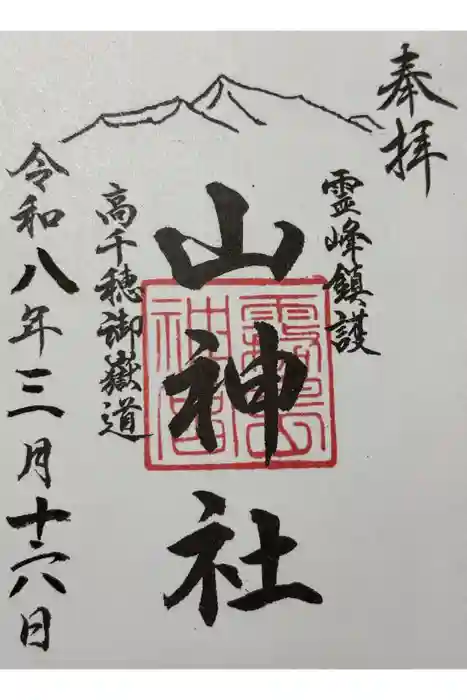 奉拝
霊峰鎮護
山神社
霧島
神宮
高千穂御嶽道
令和八年三月十六日